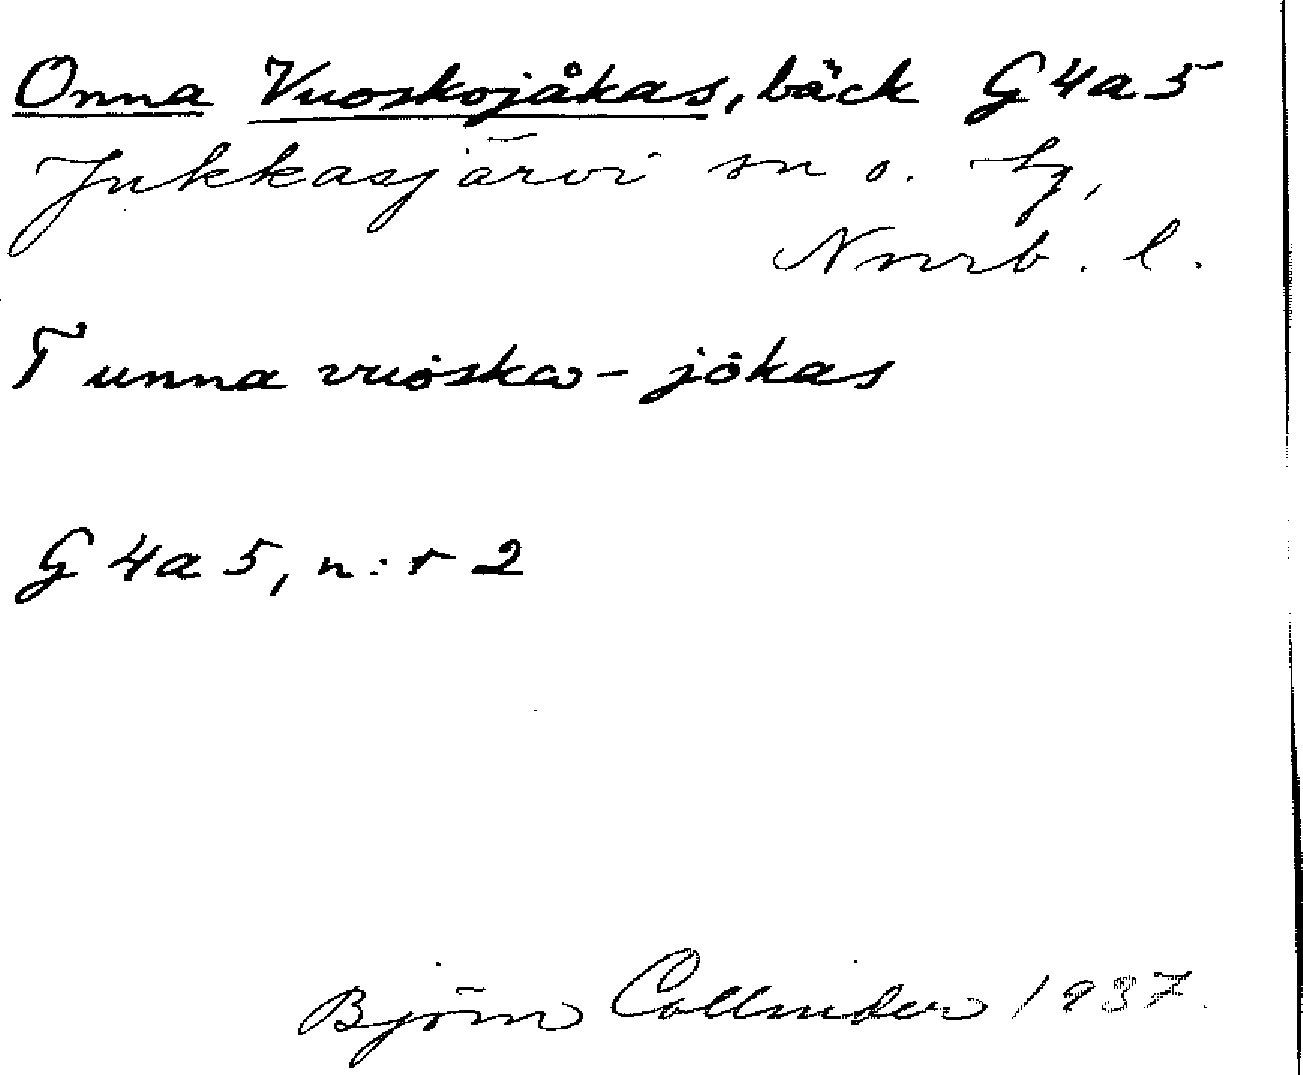 Onna Vuoskojåkas, bäck G 4a 5
Jukkasjärvi sn o. tg,
Norrb. l.
T unna vuosko-jokas
G 4a 5, n:r 2
Björn Collinder 1937.